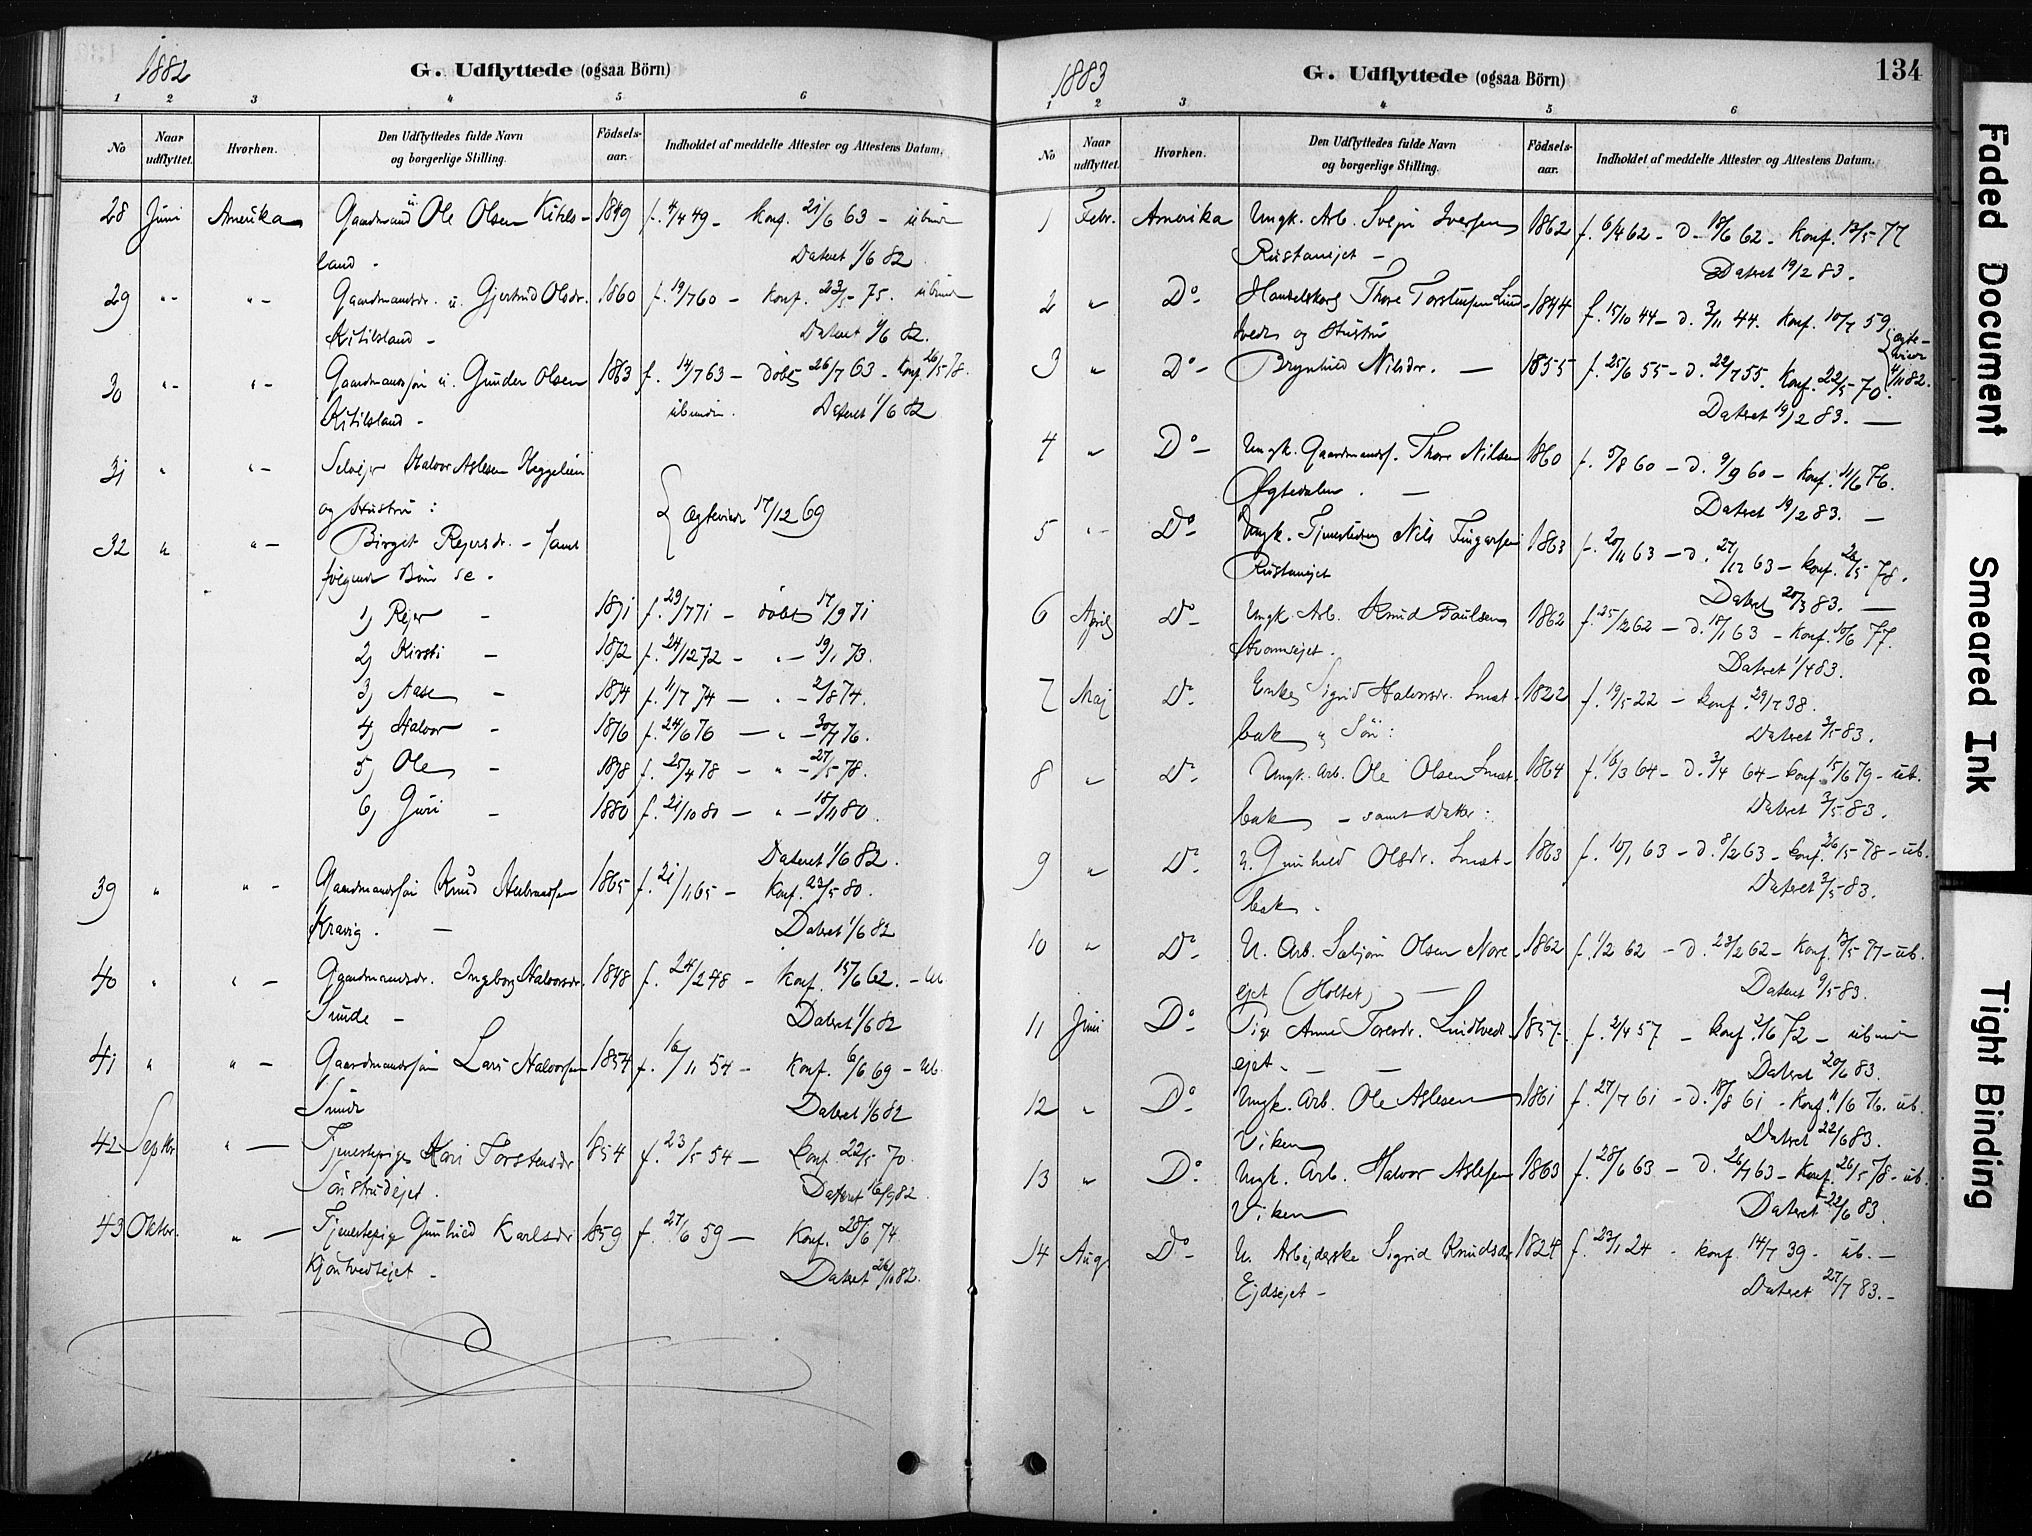 1882
G. Udflyttede (ogsaa Börn)
1 2 3 4 5 6
No
Naar udflyttet.
Hvorhen.
Den Udflyttedes fulde Navn
og borgerlige Stilling.
Födsels-
aar.
Indholdet af meddelte Attester og Attestens Datum.
28 Juni Amerika Gaardmand u. Ole Olsen Kitils- 1849 f. 4/4 49 - Konf. 21/6 63 - ubund
land - Dateret 1/6 82
29 " - " - Gaardmandsdr. u. Gjertrud Olsdr. 1860 f. 19/7 60 - Konf. 23/5 75. ubund
Kitilsland - Dateret 1/6 82.
30 " - " - Gaardmandssön u. Gunder Olsen 1863 f. 14/7 63 - döbt 26/7 63 - Konf. 26/5 78.
Kitilsland - ubunden. Dateret 1/6 82
31 " " - Selvejer Halvor Aslesen Heggelien
og Hustru : { Ægteviede 17/12 69
32 " " - Birgit Rejersdr. - samt
følgende Børn se -
1) Rejer - 1871 f. 29/7 71 - döbt 17/9 71
2) Kirsti - 1872 f. 24/12 72 - " - 19/1 73.
3) Aase - 1874 f. 11/7 74 - " - 2/8 74.
4) Halvor - 1876 f. 24/6 76 - " - 30/7 76.
5) Ole - 1878 f. 25/4 78 - " - 27/5 78.
6) Guri - 1880 f. 21/10 80 - " - 18/11 80.
Dateret 1/6 82.
39 " " - Gaardmandssön Knud Herbrandsen 1865 f. 21/1 65 - Konf. 23/5 80.
Kravig. - Dateret 1/6 82
40 " " - Gaardmandsdr. Ingeborg Halvorsdr. 1848 f. 24/2 48 - Konf. 15/6 62. - Ub
Sunde - Dateret 1/6 82
41 " " - Gaardmandssön Lars Halvorsen 1854 f. 16/11 54 - Konf. 6/6 69 - Ub.
Sunde Dateret 1/6 82
42 Septbr " - Tjenestepige Kari Torstensdr 1854 f. 23/5 54 - Konf. 22/5 70.
Sönstrudejet. Dateret 16/9 82
43 Oktbr. " - Tjenestepige Gunhild Karlsdr 1859 f. 27/6 59 - Konf. 28/6 74
Kjöntvedtejet - Dateret 26/10 82.
1883
G. Udflyttede (ogsaa Börn)
134
1 2 3 4 5 6
No
Naar udflyttet.
Hvorhen.
Den Udflyttedes fulde Navn
og borgerlige Stilling.
Födsels-
aar.
Indholdet af meddelte Attester og Attestens Datum.
1 Febr. Amerika Ungk. Arb. Svejn Iversen 1862 f. 6/4 62 - d. 18/6 62 - Konf. 13/5 77
Rustanejet - Dateret 19/2 83.
2 " Do - Handelskarl Thore Torstensen Lind- 1844 f. 15/10 44 - d. 3/11 44. Konf. 10/7 59
tvedt og Hustru { ægte-
viede
3 " Do - Brynhild Nilsdr. - 1855 f. 25/6 55 - d. 22/7 55. Konf. 22/5 70. 4/11 82.
Dateret 19/2 83. -
4 " Do - Ungk. Gaardmands. Thore Nilsen 1860 f. 5/8 60 - d. 9/9 60 - Konf. 11/6 76.
Ögtedalen. - Dateret 19/2 83. -
5 " - Do - Ungk. Tjenestedreng Nils Fingarsen 1863 f. 20/11 63 - d. 27/12 63 - Konf. 26/5 78.
Rustanejet Dateret 20/3 83. -
6 April Do - Ungk. Arb. Knud Paulsen 1862 f. 25/12 62 - d. 18/1 63 - Konf. 10/6 77.
Dateret 1/4 83.
7 Maj Do - Enke Sigrid Halvorsdr. Smat- 1822 f. 19/5 22 - Konf. 29/7 38.
bak og Sön: Dateret 3/5 83.
8 " Do - Ungk. Arb. Ole Olsen Smat- 1864 f. 16/3 64 - d. 3/4 64 - Konf. 15/6 79 - ub.
bak - samt Datter: Dateret 3/5 83.
9 " Do - U. Gunhild Olsdr. Smat- 1863 f. 10/1 63 - d. 8/2 63 - Konf. 26/5 78 - ub.
bak - Dateret 3/5 83.
10 " Do - U. Arb. Sebjørn Olsen Nore- 1862 f. 1/2 62 - d. 23/2 62 - Konf. 13/5 77 - ub.
ejet (Holtet) - Dateret 9/5 83.
11 Juni Do - Pige Anne Toresdr. Lindtvedt 1857 f. 2/4 57 - Konf. 2/6 72 - ubund
ejet - Dateret 20/6 83.
12 " Do - Ungk. Arb. Ole Aslesen 1861 f. 27/7 61 - d. 18/8 61 - Konf. 11/6 76. ub.
Viken Dateret 22/6 83.
13 " Do - Ungk. Arb. Halvor Aslesen 1863 f. 28/6 63 - d. 26/7 63 - Konf. 26/5 78 - ub.
Viken Dateret 22/6 83.
14 Aug Do - U. Arbejderske Sigrid Knudsdr 1824 f. 23/1 24 - Konf. 14/7 39 - ub. -
Ejdsejet - Dateret 27/7 83. -
Faded Document
Smeared Ink
Tight Binding